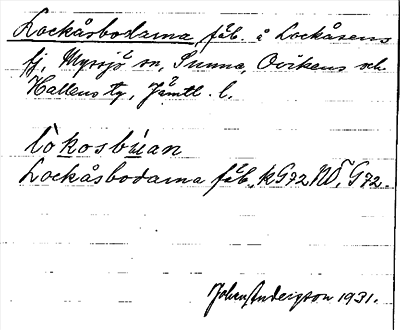 Lockåsbodarna, fäb. å Lockåsens
fj, Myssjö sn, Sunne, Ovikens och
Hallens tg, Jämtl. l.
lòkosbúan
Lockåsbodarna fäb, kG72 NÖ, G72.
Johan Andersson 1931.